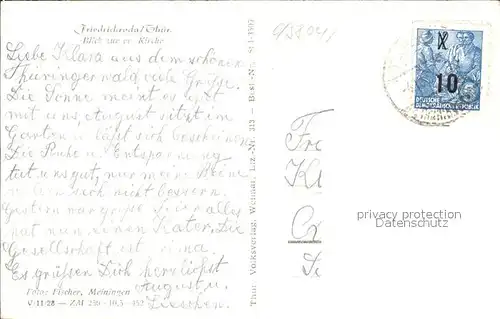 Friedrichroda/Thür.
Blick zur ev. Kirche
Liebe Klara aus dem schönen
Thüringerwald viele Grüße.
Die Sonne meint es gut
mit uns, August sitzt im
Garten u. läßt sich bescheinen.
Die Ruhe u. Entspannung
tut uns gut, nur meine Beine
sich nicht bessern.
Gestern war große Feier alles
hat nun einen Kater, die
Gesellschaft ist prima.
Es grüßen Dich herzlichst
August u.
Lieschen.
Foto: Fischer, Meiningen
V-11-28 — ZM 259 - 10,5 - 152
Thür. Volksverlag Weimar, Liz.-Nr. 313 — Best.-Nr.
10
DEUTSCHE
DEMOKRATISCHE REPUBLIK
Fr
Kl
privacy protection
Datenschutz